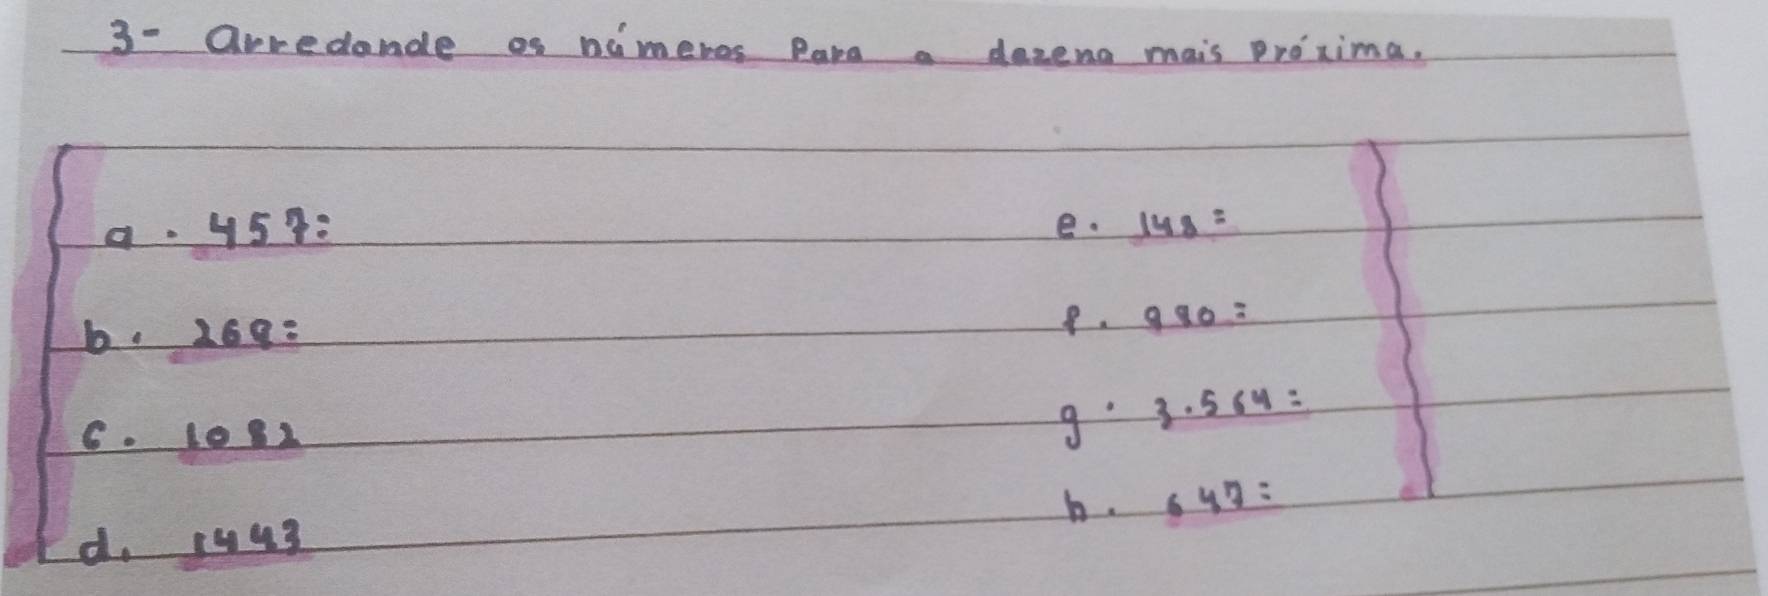 3- Arredonde os números Para a dezena mais Próxima.
a. 457: e. 148=
b. 268= f. 990=
c. 1082 g. 3.564=
d. 1443 h. 647=